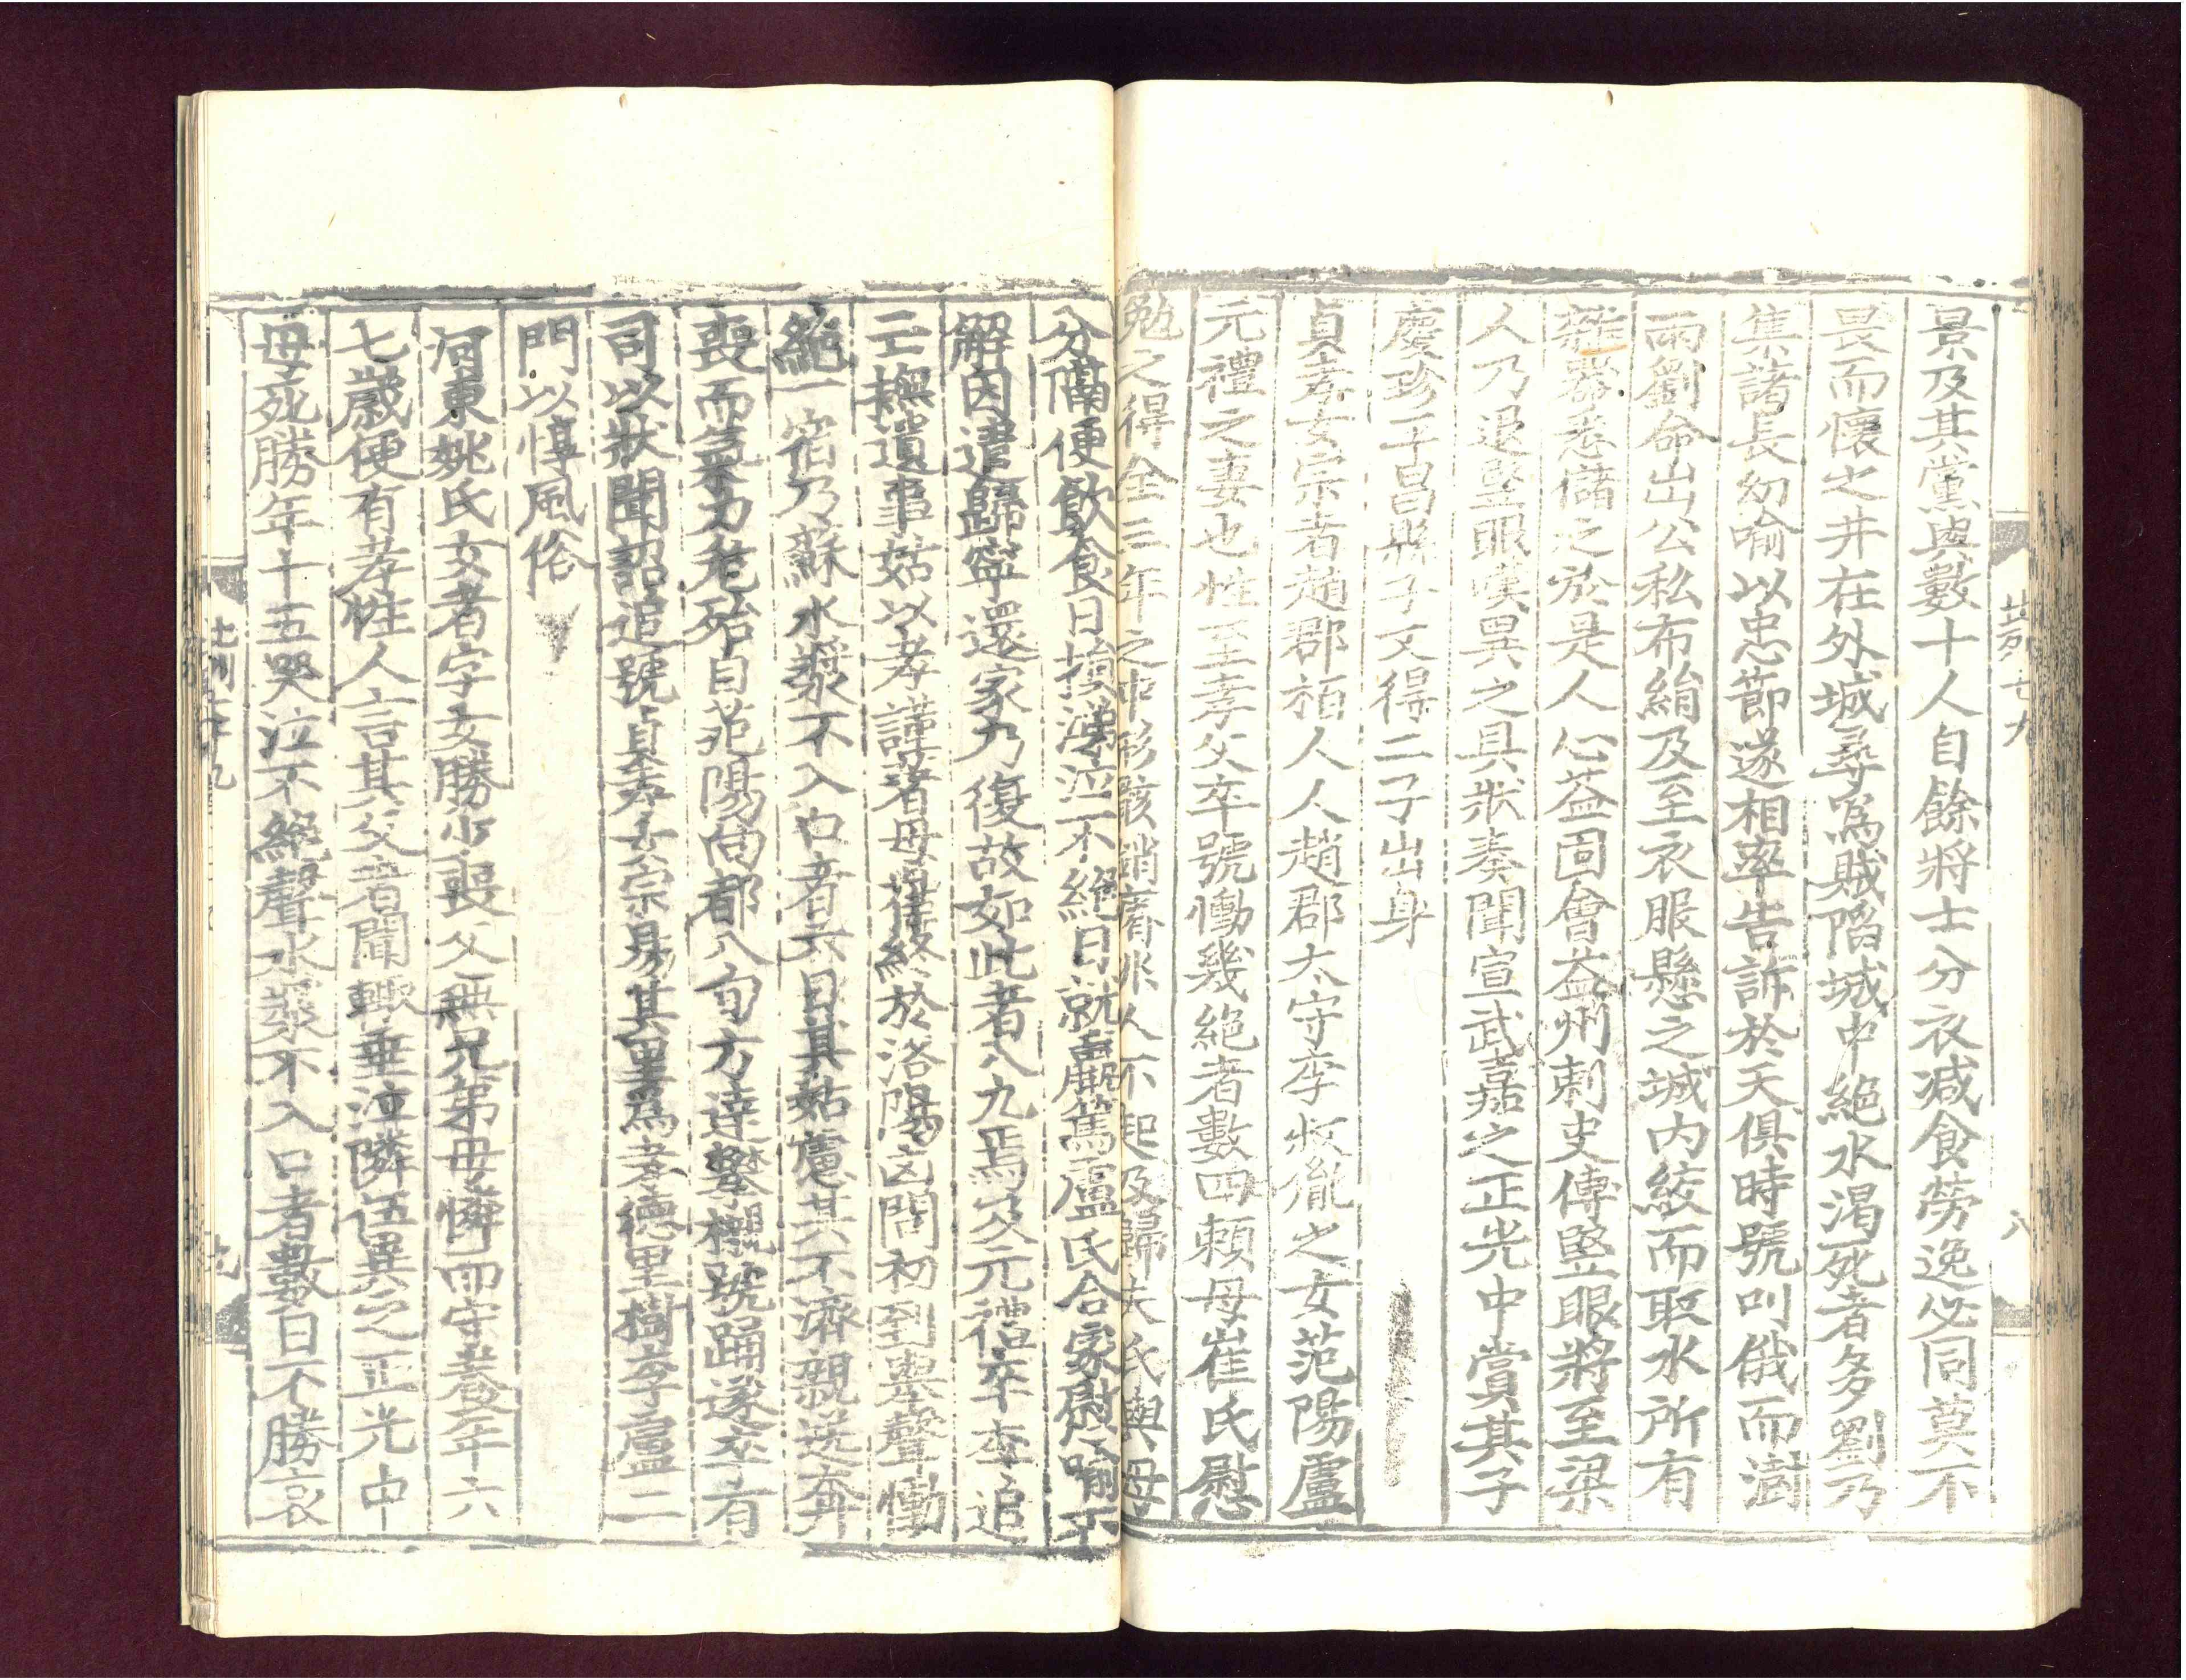 景及其黨與數十人自餘將士分衣減食勞逸必同莫不
畏而懷之井在外城尋爲賊陷城中絶水渴死者多劉乃
集諸長幼喻以忠節遂相率告訴於天俱時號叫俄而澍
雨劉命出公私布絹及至衣服懸之城内絞而取水所有
雜器悉儲之於是人心益固會益州刺史傅竪眼將至梁
人乃退竪眼嘆異之具狀奏聞宣武嘉之正光中賞其子
慶珍平昌縣子又得二子出身
貞孝女宗者趙郡栢人人趙郡太守李叔胤之女范陽盧
元禮之妻也性至孝父卒號慟幾絶者數四頼母崔氏慰
勉之得全三年之中形骸銷瘠非人不起及歸夫氏與母
分隔便飲食日損涕泣不絶日就羸篤盧氏合家慰喻不
解因遣歸寧還家乃復故如此者八九焉後元禮卒李追
亡撫遺事姑以孝謹著母崔終於洛陽凶問初到舉聲慟
絶一宿乃蘇水漿不入口者六日其姑慮其不濟親送奔
喪而氣力危殆自范陽向都八旬方達攀櫬號踊遂卒有
司以狀聞詔追號貞孝女宗易其里爲孝德里樹李盧二
門以惇風俗
河東姚氏女者字女勝少喪父無兄弟母憐而守養年六
七歲便有孝性人言其父者聞輙垂泣隣伍異之正光中
母死勝年十五哭泣不絶聲水漿不入口者數日不勝哀